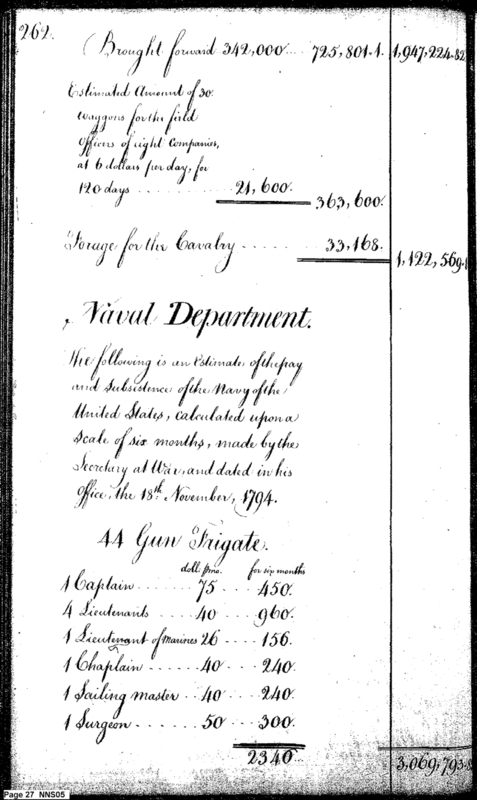 262.
Brought forward 342,000... 725,801.1. 1,947,224.82
Estimated Amount of 30
waggons for the field
officers of eight Companies,
at 6 dollars per day, for
120 days ......... 21,600.
363,600.
Forage for the Cavalry ..... 33,168.
1,122,569.1
Naval Department.
The following is an Estimate of the pay
and Subsistence of the Navy of the
United States, calculated upon a
Scale of six months, made by the
Secretary at War, and dated in his
Office, the 18th November, 1794.
44 Gun Frigate.
doll. pmo. for six months
1 Captain ........ 75 .... 450.
4 Lieutenants ..... 40 .... 960.
1 Lieutenant of marines 26 .... 156.
1 Chaplain ...... 40 ... 240.
1 Sailing master .. 40 ... 240.
1 Surgeon ....... 50 ... 300.
2346
3,069,793.
Page 27 NNS05